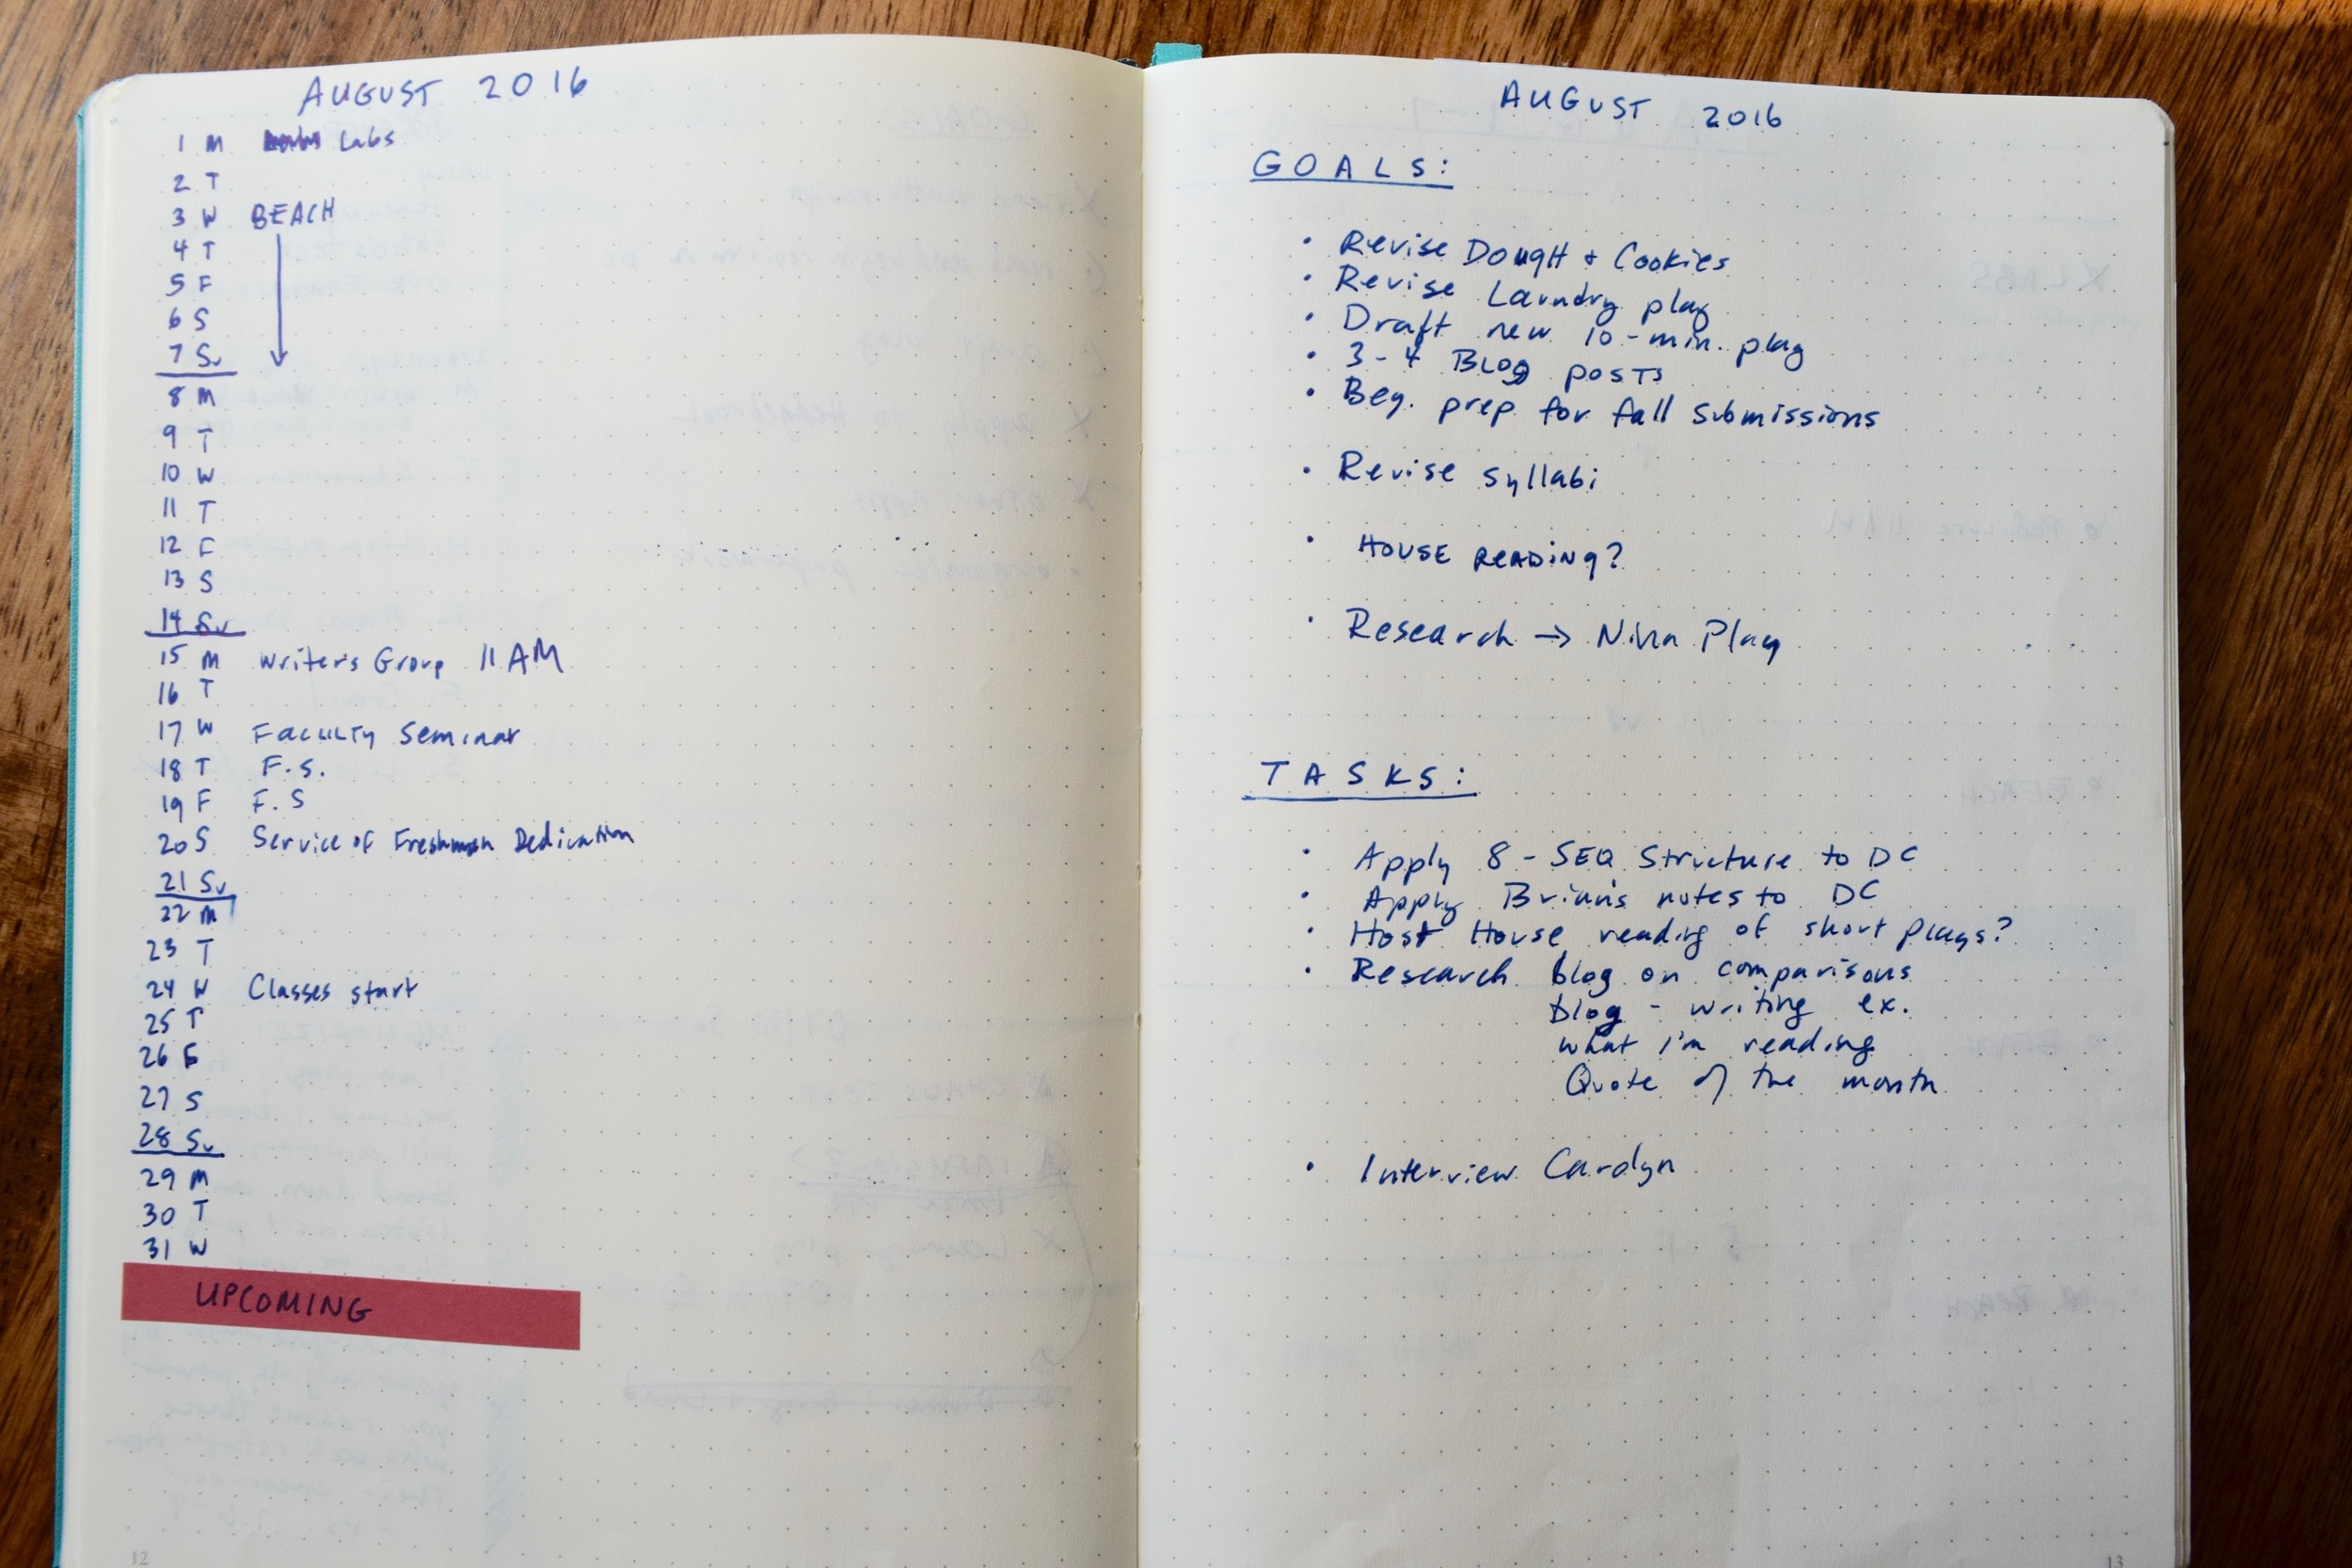 AUGUST 2016
1 M Labs
2 T
3 W BEACH
4 T
5 F
6 S
7 Su
8 M
9 T
10 W
11 T
12 F
13 S
14 Su
15 M Writer's Group 11 AM
16 T
17 W FACULTY Seminar
18 T F.S.
19 F F.S
20 S Service of Freshman Dedication
21 Su
22 M
23 T
24 W Classes start
25 T
26 F
27 S
28 Su
29 M
30 T
31 W
UPCOMING
12
AUGUST 2016
GOALS:
• Revise DougH + Cookies
• Revise Laundry play
• Draft new 10-min. play
• 3-4 BLOg posts
• Beg. prep for fall submissions
• Revise syllabi
• HOUSE READiNg?
• Research → Nina Play
TASKS:
• Apply 8-SEQ Structure to DC
• Apply Brian's notes to DC
• Host House reading of short plays?
• Research blog on comparisons
blog - writing ex.
what I'm reading
Quote of the month
• Interview Carolyn
13